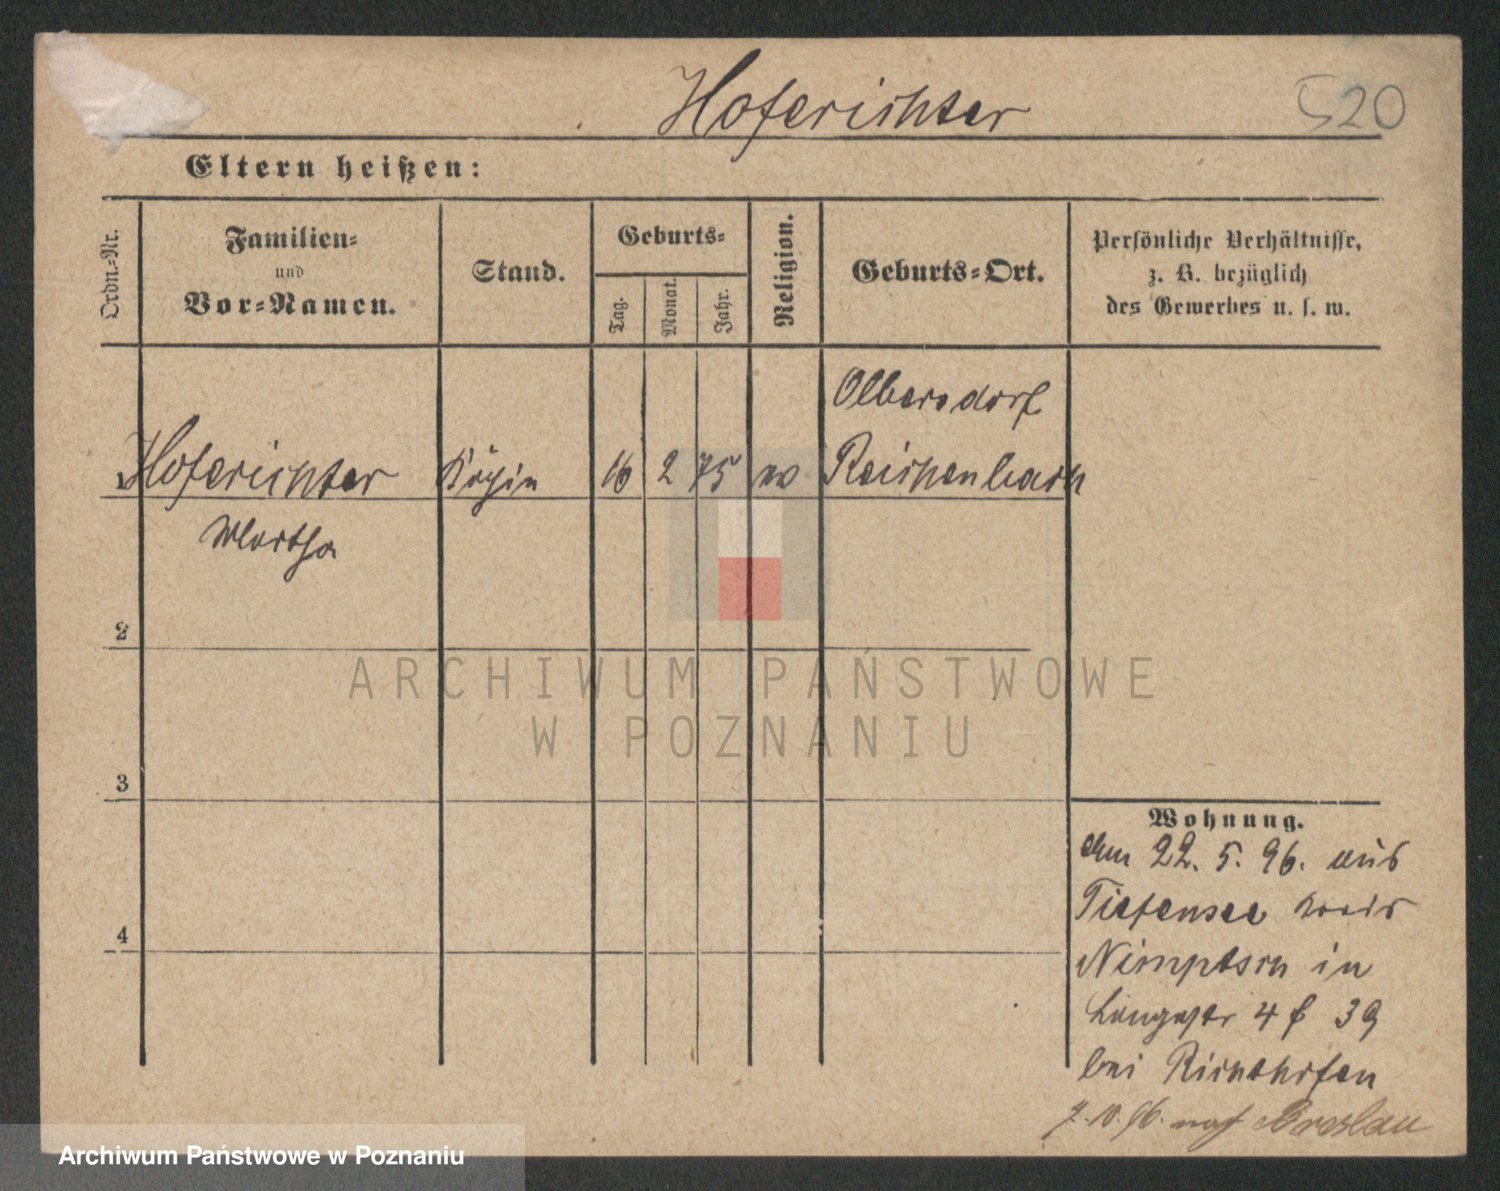 Hoferichter
520
Eltern heißen:
Ordn.-Nr.
Familien-
und
Vor-Namen.
Stand.
Geburts-
Tag.
Monat.
Jahr.
Religion.
Geburts-Ort.
Persönliche Verhältnisse,
z. B. bezüglich
des Gewerbes u. s. w.
Olbersdorf
Hoferichter Köchin 16 2 75 ev Reichenbach
Martha
2
3
4
ARCHIWUM PAŃSTWOWE
W POZNANIU
Wohnung.
Am 22. 5. 96. aus
Tiefensee Kreis
Nimptsch in
Langestr 4 39
bei
7. 10. 96. nach Breslau
Archiwum Państwowe w Poznaniu